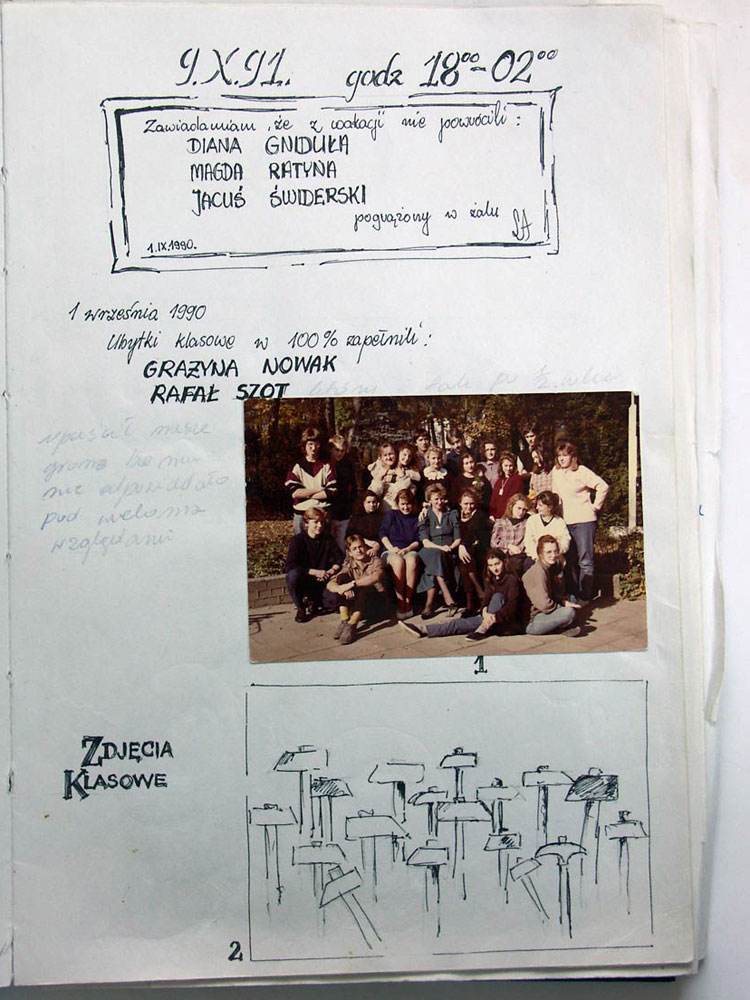 9.X.91. godz 18⁰⁰-02⁰⁰
Zawiadamiam, że z wakacji nie powrócili:
DIANA GNIDUŁA
MAGDA RATYNA
JACUŚ ŚWIDERSKI
pogrążony w żalu
1.IX.1990.
1 września 1990
Ubytki klasowe w 100% zapełnili:
GRAŻYNA NOWAK
RAFAŁ SZOT
opuścił nasze
grono bo mu
nie odpowiadało
pod wieloma
względami
1
ZDJĘCIA
KLASOWE
2